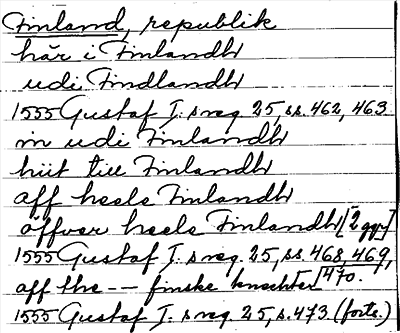 Finland, republik
här i Finlandh
udi Findlandh
1555 Gustaf I. s reg. 25, ss. 462, 463
in udi Finlandh
hiit till Finlandh
aff heele Finlandh
öffver heele Finlandh [2 ggr]
1555 Gustaf I. s reg. 25, ss. 468, 469, 470.
aff the -- finske knechter
1555 Gustaf I. s reg. 25, s. 473 (forts.)